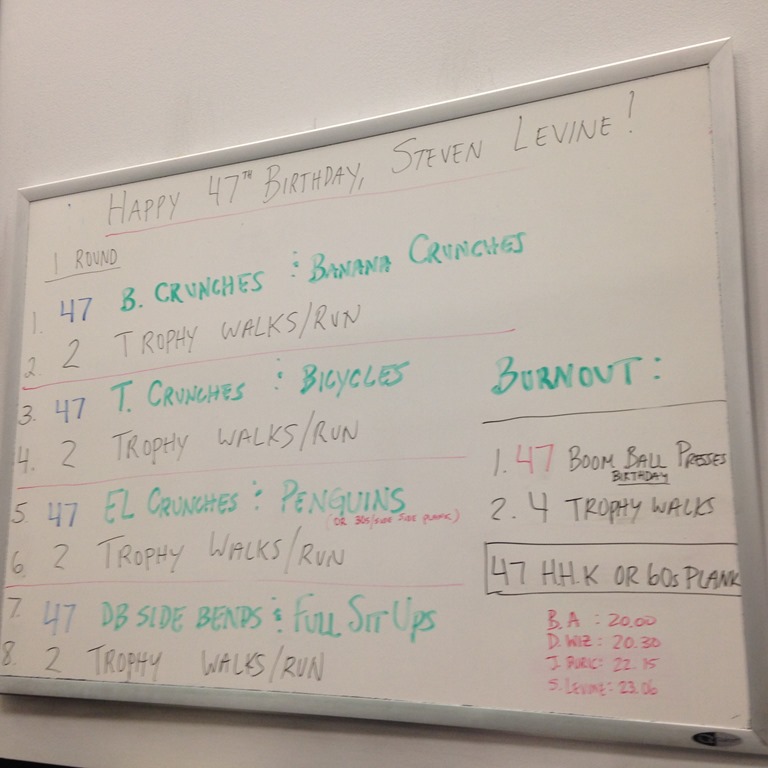 HAPPY 47TH BIRTHDAY, STEVEN LEVINE!
1 ROUND
1. 47 B. CRUNCHES : BANANA CRUNCHES
2. 2 TROPHY WALKS/RUN
3. 47 T. CRUNCHES : BICYCLES
4. 2 TROPHY WALKS/RUN
5. 47 EL CRUNCHES : PENGUINS
(OR 30s/SIDE SIDE PLANK)
6. 2 TROPHY WALKS/RUN
7. 47 DB SIDE BENDS : FULL SIT UPS
8. 2 TROPHY WALKS/RUN
BURNOUT:
1. 47 BOOM BALL PRESSES
BIRTHDAY
2. 4 TROPHY WALKS
47 H.H.K OR 60s PLANK
B. A : 20.00
D. WIZ : 20.30
J. : 22.15
S. LEVINE: 23.06